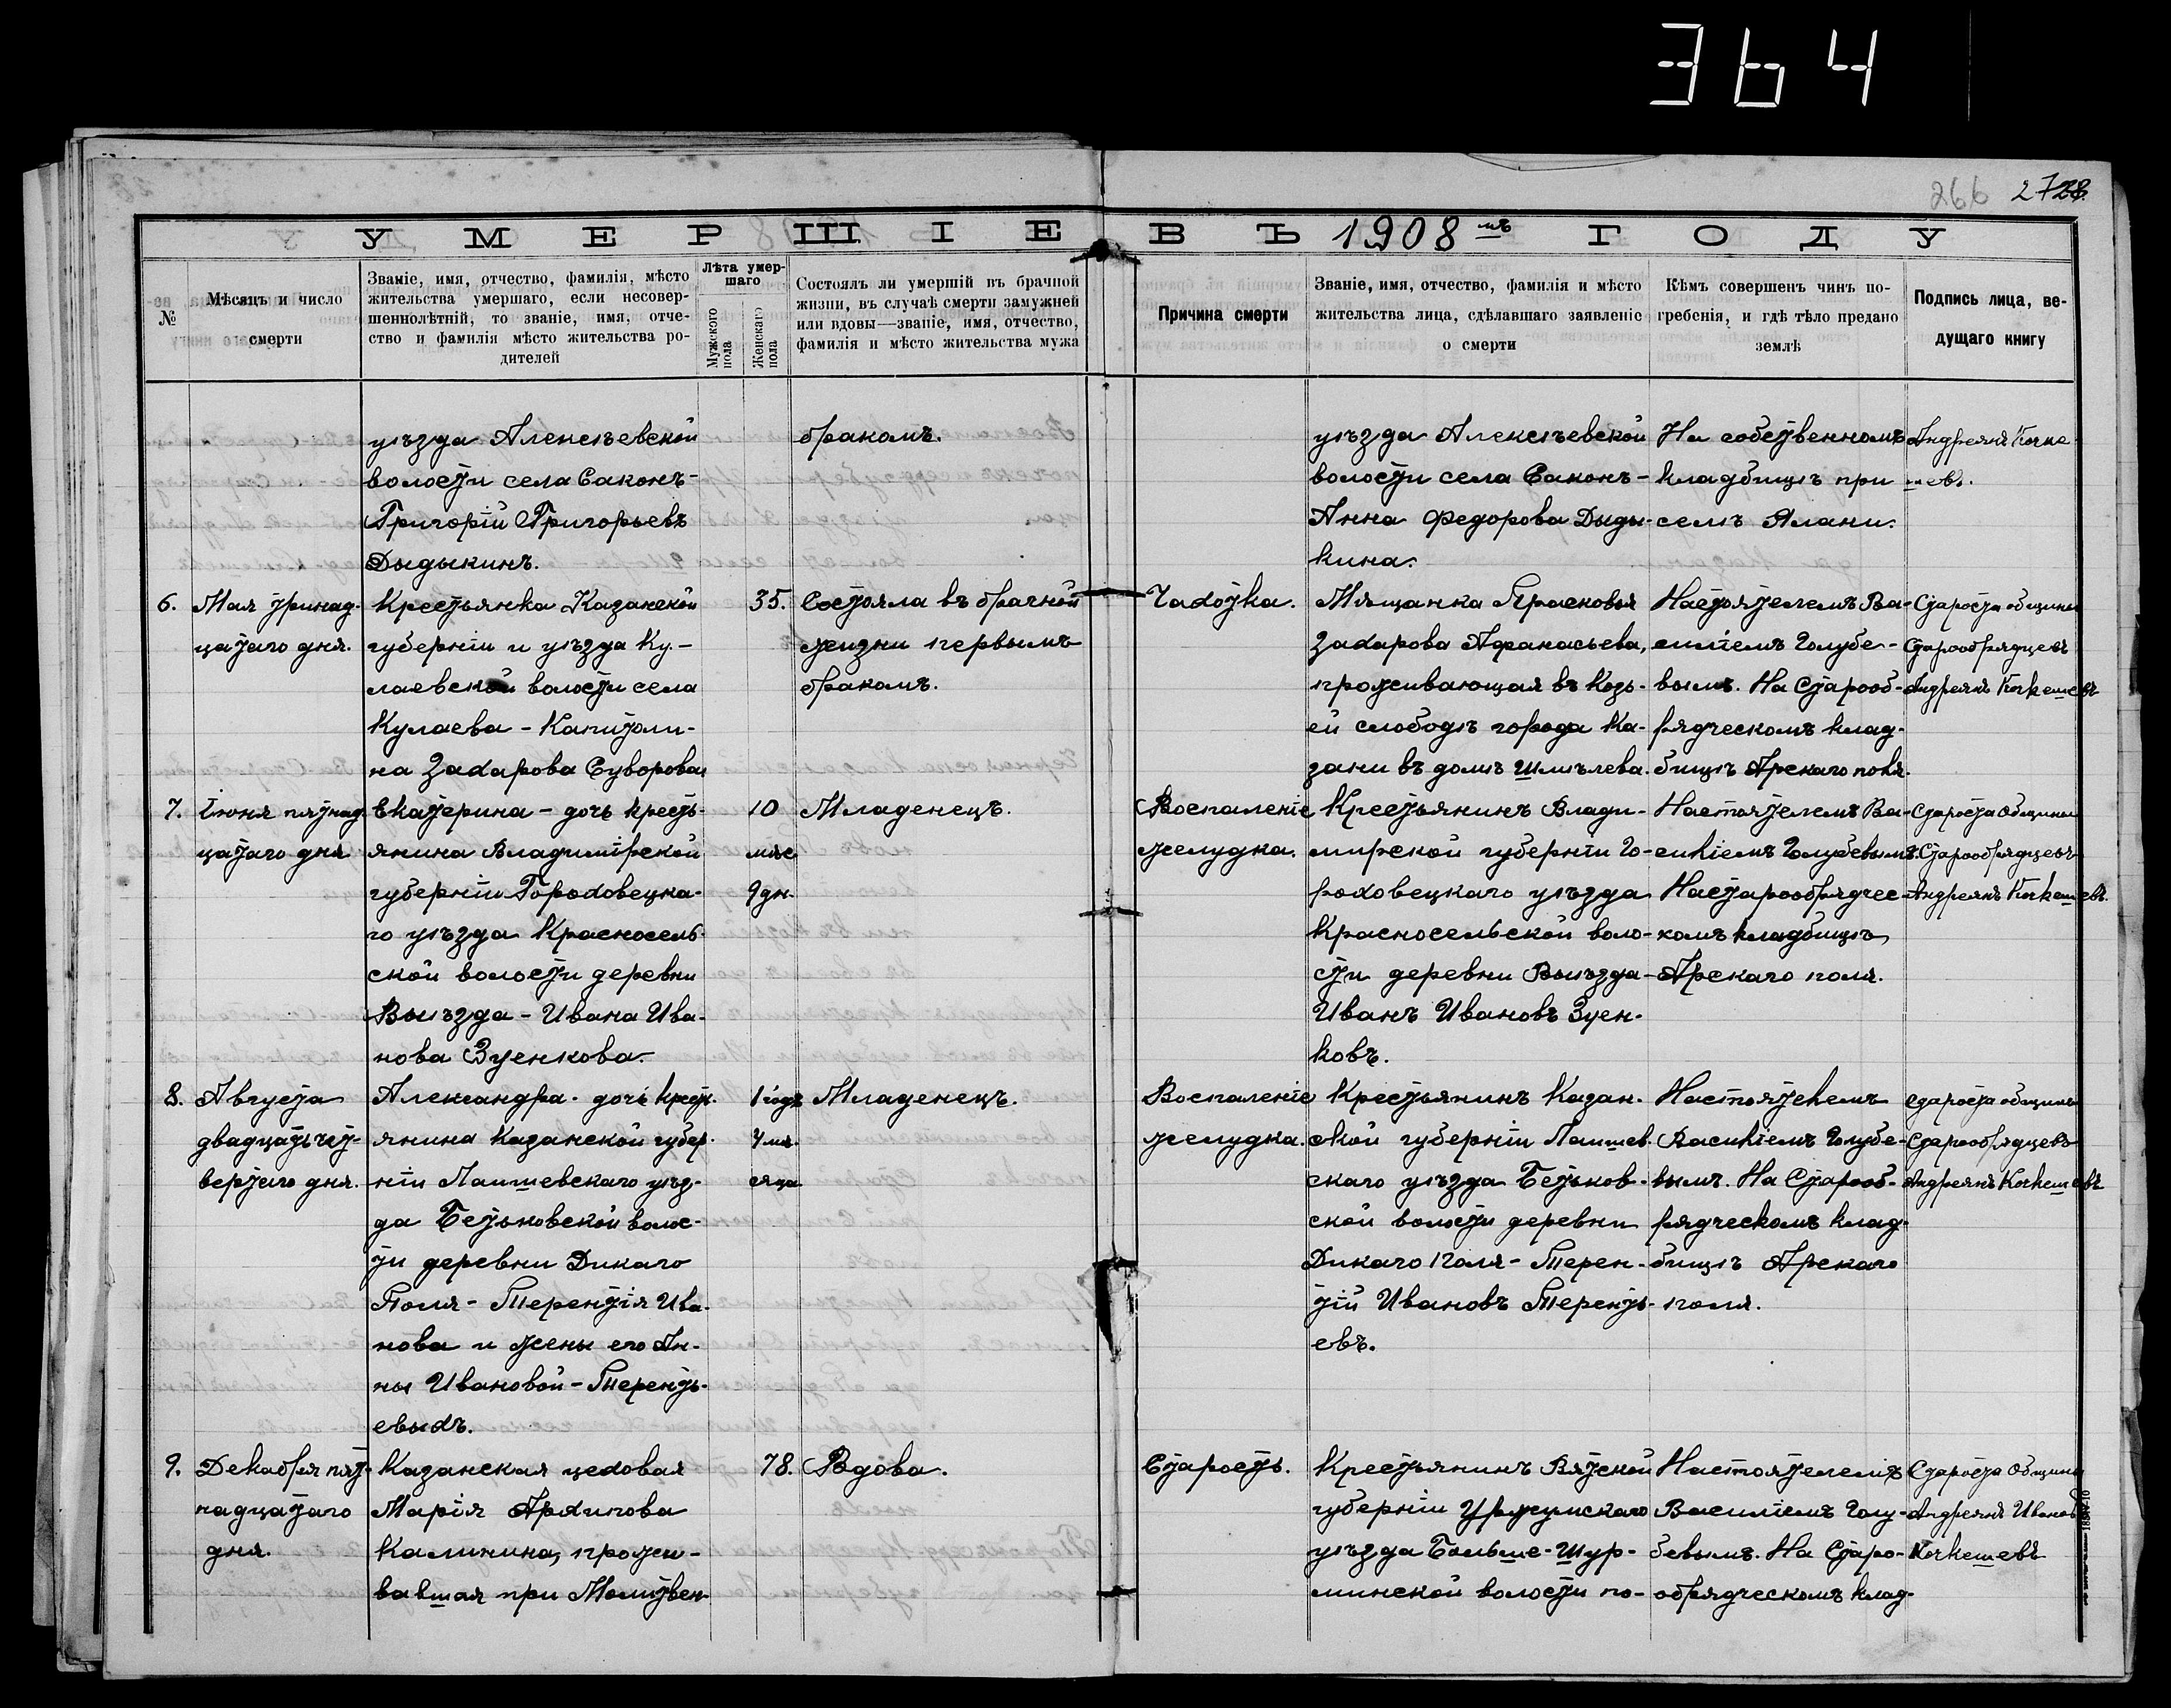 364
266 2728
УМЕРШІЕ ВЪ 1908 мъ ГОДУ
№
Мѣсяцъ и число
смерти
Званіе, имя, отчество, фамилія, мѣсто
жительства умершаго, если несовер-
шеннолѣтній, то званіе, имя, отче-
ство и фамилія мѣсто жительства ро-
дителей
Лѣта умер-
шаго
Мужского
пола
Женскаго
пола
Состоялъ ли умершій въ брачной
жизни, въ случаѣ смерти замужней
или вдовы—званіе, имя, отчество,
фамилія и мѣсто жительства мужа
Причина смерти
Званіе, имя, отчество, фамилія и мѣсто
жительства лица, сдѣлавшаго заявленіе
о смерти
Кѣмъ совершенъ чинъ по-
гребенія, и гдѣ тѣло предано
землѣ
Подпись лица, ве-
дущаго книгу
уѣзда Алексѣевской
волости села Саконъ-
Григорій Григорьевъ
Дыдыкинъ.
бракомъ.
уѣзда Алексѣевской
волости села Саконъ-
Анна Федорова Дыды-
кина.
На собственномъ
кладбищѣ при
селѣ Алани.
Андреянъ Кочке-
шевъ.
6.
Мая тринад-
цатаго дня.
Крестьянка Казанской
губерніи и уѣзда Ку-
лаевской волости села
Кулаева - Капитоли-
на Захарова Суворова
35.
Состояла въ брачной
жизни первымъ
бракомъ.
Чахотка.
Мѣщанка Прасковья
Захарова Афанасьева,
проживающая въ Козь-
ей слободѣ города Ка-
зани въ домѣ Шмѣлева.
Настоятелемъ Ва-
силіемъ Голубе-
вымъ. На Старооб-
рядческомъ клад-
бищѣ Арскаго поля.
Староста общины
Старообрядцевъ
Андреянъ Кочкешевъ
7.
Іюня пятнад-
цатаго дня
Екатерина - дочь кресть-
янина Владимірской
губерніи Гороховецка-
го уѣзда Красносель-
ской волости деревни
Выѣзда - Ивана Ива-
нова Зуенкова.
10
мѣс
9 дн.
Младенецъ.
Воспаленіе
желудка.
Крестьянинъ Влади-
мирской губерніи Го-
роховецкаго уѣзда
Красносельской воло-
сти деревни Выѣзда-
Иванъ Ивановъ Зуен-
ковъ.
Настоятелемъ Ва-
силіемъ Голубевымъ.
На старообрядчес-
комъ кладбищѣ
Арскаго поля.
Староста Общины
Старообрядцевъ
Андреянъ Кочкешевъ.
8.
Августа
двадцать чет-
вертаго дня.
Александра - дочь крест-
янина Казанской губер-
ніи Лаишевскаго уѣз-
да Бетьковской волос-
ти деревни Дикаго
Поля - Терентія Ива-
нова и жены его Ан-
ны Ивановой - Теренть-
евыхъ.
1 годъ
4 мѣ-
сяца
Младенецъ.
Воспаленіе
желудка.
Крестьянинъ Казан-
ской губерніи Лаишев-
скаго уѣзда Бетьков-
ской волости деревни
Дикаго Поля - Терен-
тій Ивановъ Теренть-
евъ.
Настоятелемъ
Василіемъ Голубе-
вымъ. На Старооб-
рядческомъ клад-
бищѣ Арскаго
поля.
Староста общины
Старообрядцевъ
Андреянъ Кочкешевъ
9.
Декабря пят-
надцатаго
дня.
Казанская цеховая
Марія Архипова
Калинина, прожи-
вавшая при Молитвен-
78.
Вдова.
Старость.
Крестьянинъ Вятской
губерніи Уржумскаго
уѣзда Больше-Шур-
минской волости по-
Настоятелемъ
Василіемъ Голу-
бевымъ. На Старо-
обрядческомъ клад-
Староста Общины
Андреянъ Ивановъ
Кочкешевъ